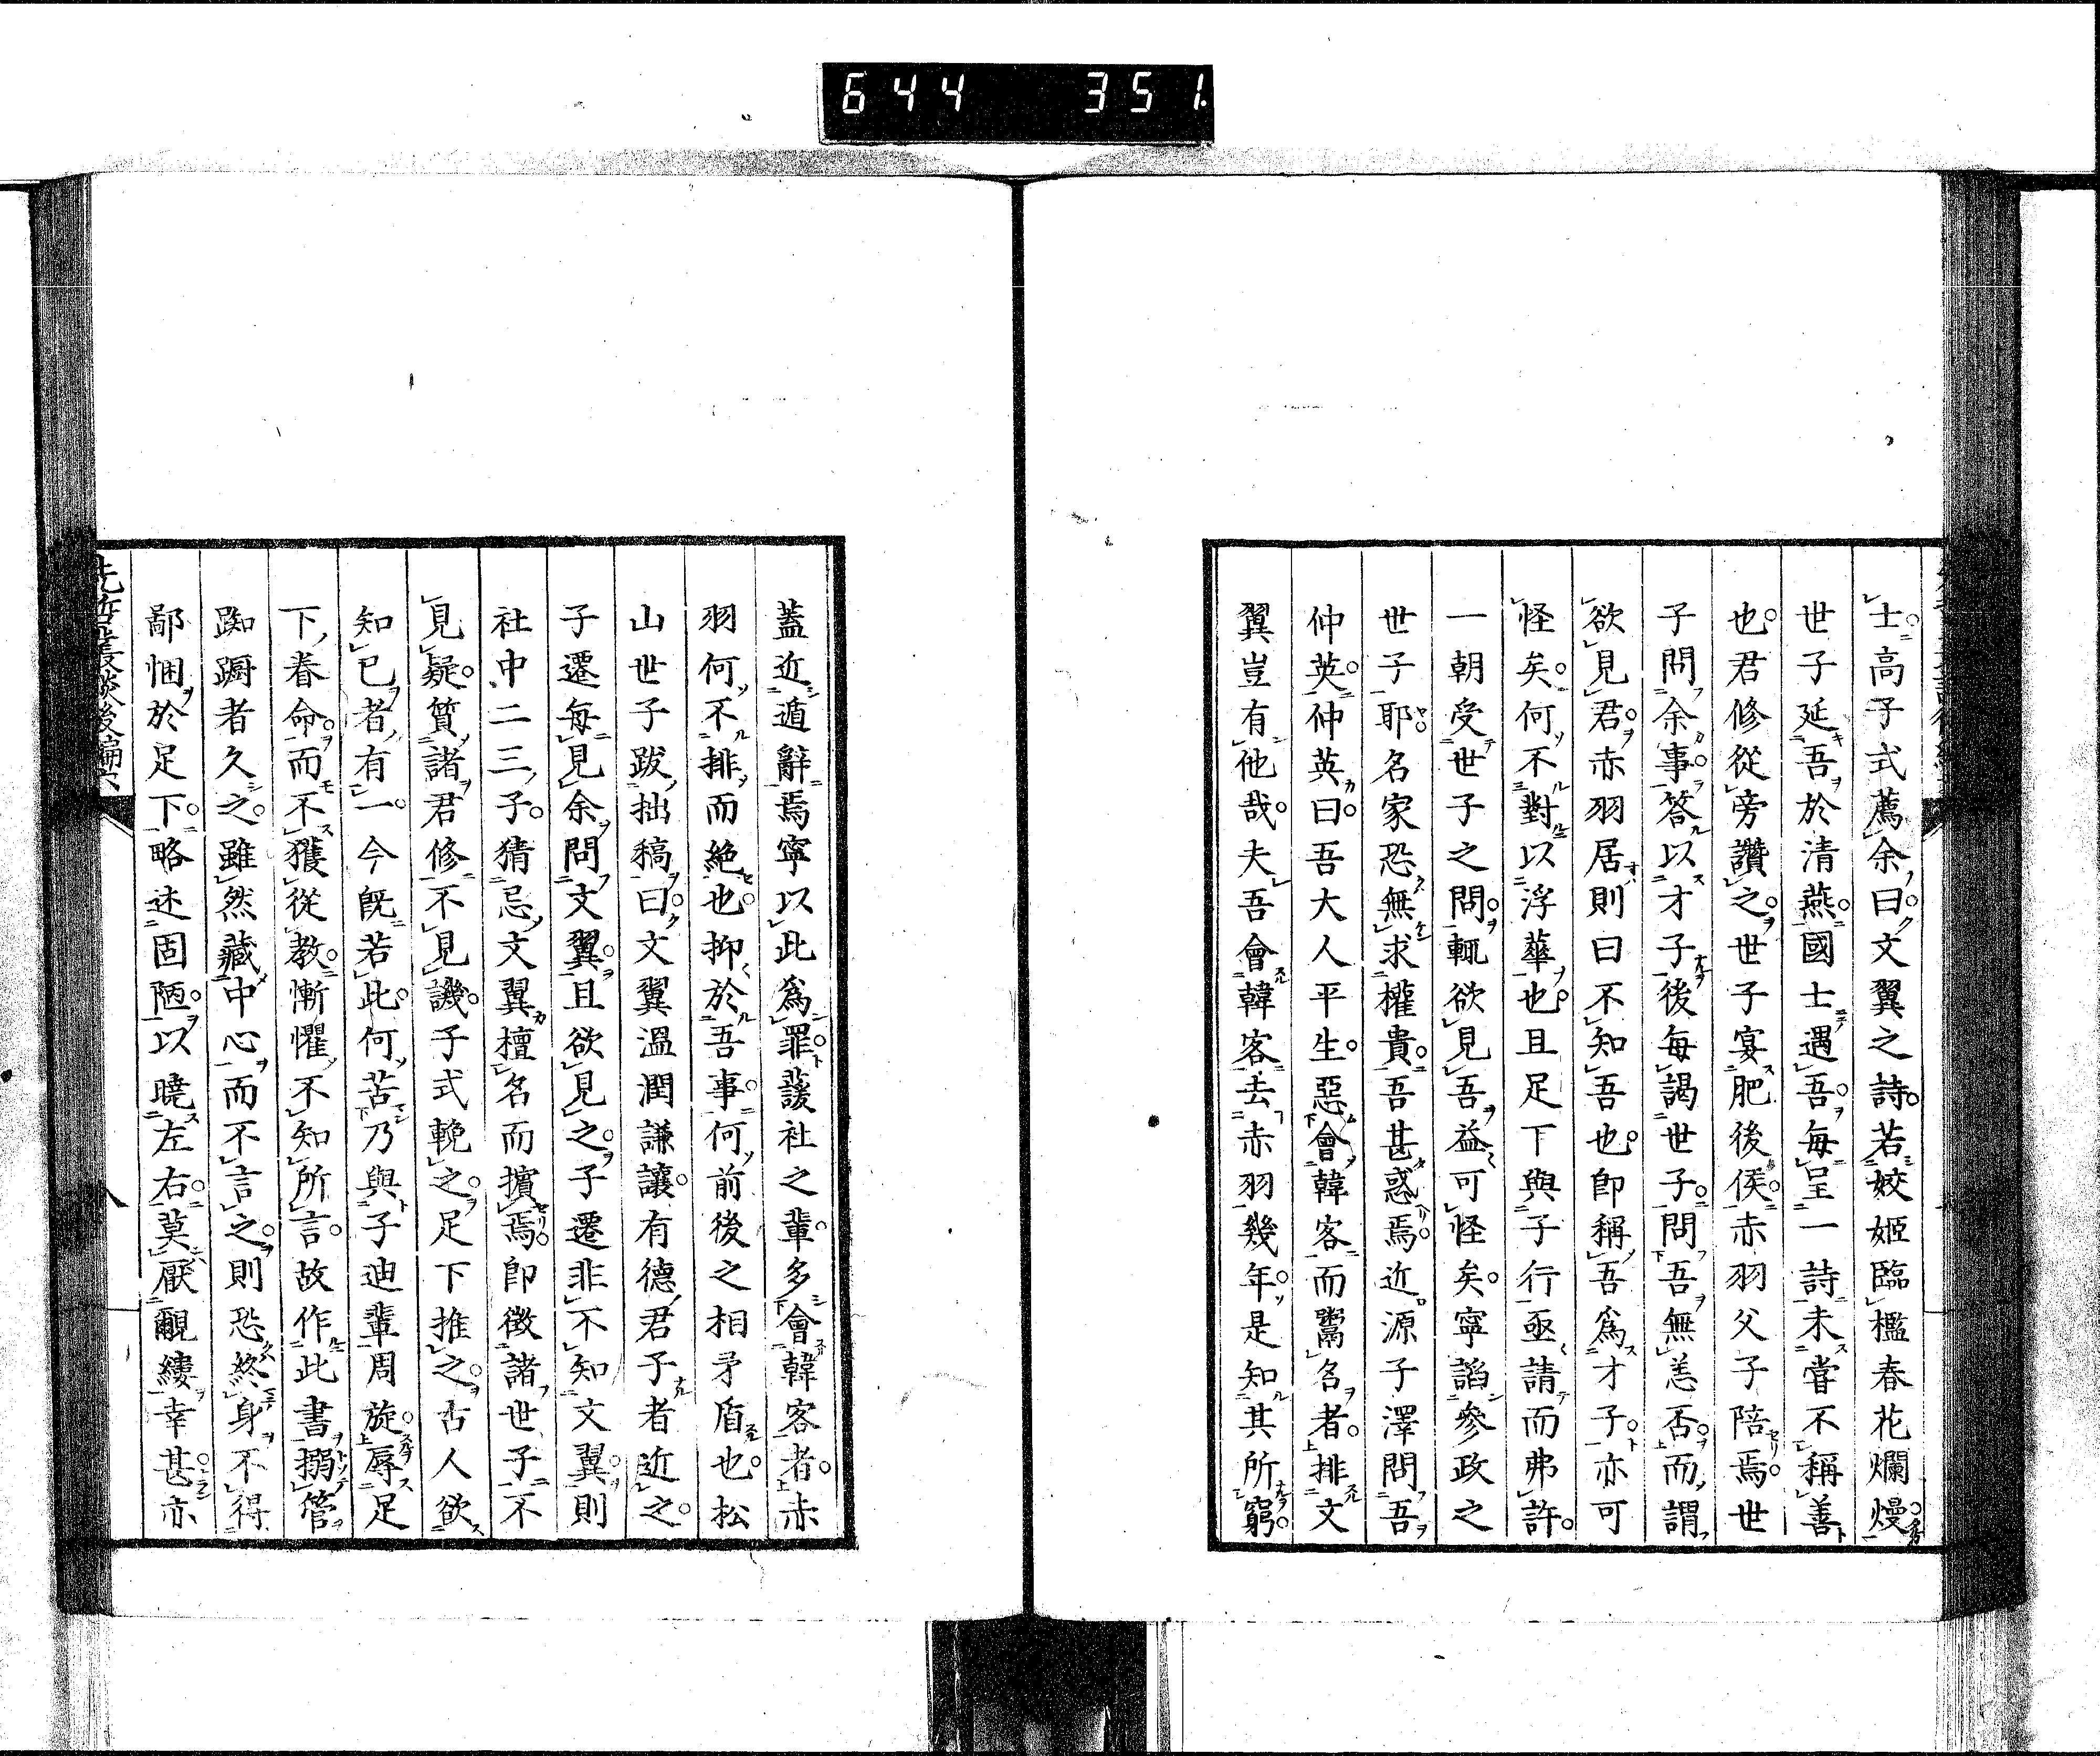 644 351
士高子式薦余曰文翼之詩若姣姬臨檻春花爛熳
世子延吾於清燕國士遇吾每呈一詩未嘗不稱善
也君修從旁讚之世子宴肥後侯赤羽父子陪焉世
子問余事答以才子後每謁世子問吾無恙否而謂
欲見君赤羽居則曰不知吾也卽稱吾爲才子亦可
怪矣何不對以浮華也且足下與子行亟請而弗許
一朝受世子之問輒欲見吾益可怪矣寧謟參政之
世子耶名家恐無求權貴吾甚惑焉近源子澤問吾
仲英仲英曰吾大人平生惡會韓客而鬻名者排文
翼豈有他哉夫吾會韓客去赤羽幾年是知其所窮
蓋近遁辭焉寧以此爲罪蘐社之輩多會韓客者赤
羽何不排而絕也抑於吾事何前後之相矛盾也松
山世子跋拙稿曰文翼溫潤謙讓有德君子者近之
子遷每見余問文翼且欲見之子遷非不知文翼則
社中二三子猜忌文翼擅名而擯焉卽徵諸世子不
見疑質諸君修不見譏子式輓之足下推之古人欲
知已者有一今旣若此何苦乃與子迪輩周旋辱足
下眷命而不獲從教慚懼不知所言故作此書搦管
踟蹰者久之雖然藏中心而不言之則恐終身不得
鄙悃於足下略述固陋以曉左右莫厭覼縷幸甚亦
先哲叢談後編六